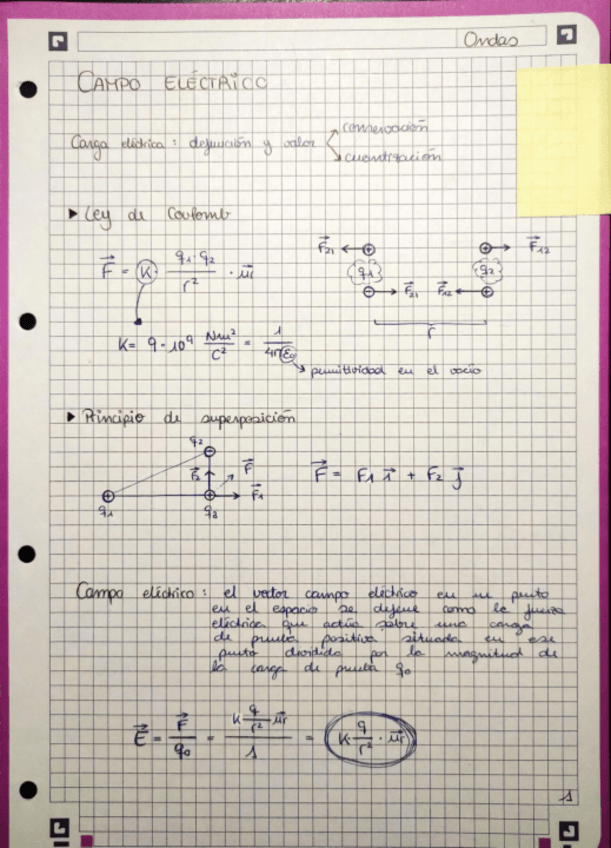 Ondas
CAMPO ELÉCTRICO
Carga eléctrica : definición y valor
conservación
cuantización
▶ Ley de Coulomb
F⃗ = K (q1 · q2 / r²) · u⃗r
F⃗21 ← ⊕ ⊕ → F⃗12
q1 q2
⊖ → F⃗21 F⃗12 ← ⊕
r
K = 9 · 10⁹ Nm²/C² = 1/4πε0
permitividad en el vacío
▶ Principio de superposición
q2
F⃗2 F⃗ F⃗1
q1 q3
F⃗ = F1 i⃗ + F2 j⃗
Campo eléctrico : el vector campo eléctrico en un punto
en el espacio se define como la fuerza
eléctrica que actúa sobre una carga
de prueba positiva situada en ese
punto dividida por la magnitud de
la carga de prueba q0
E⃗ = F⃗/q0 = (K q/r² u⃗r)/1 = K · q/r² · u⃗r
1